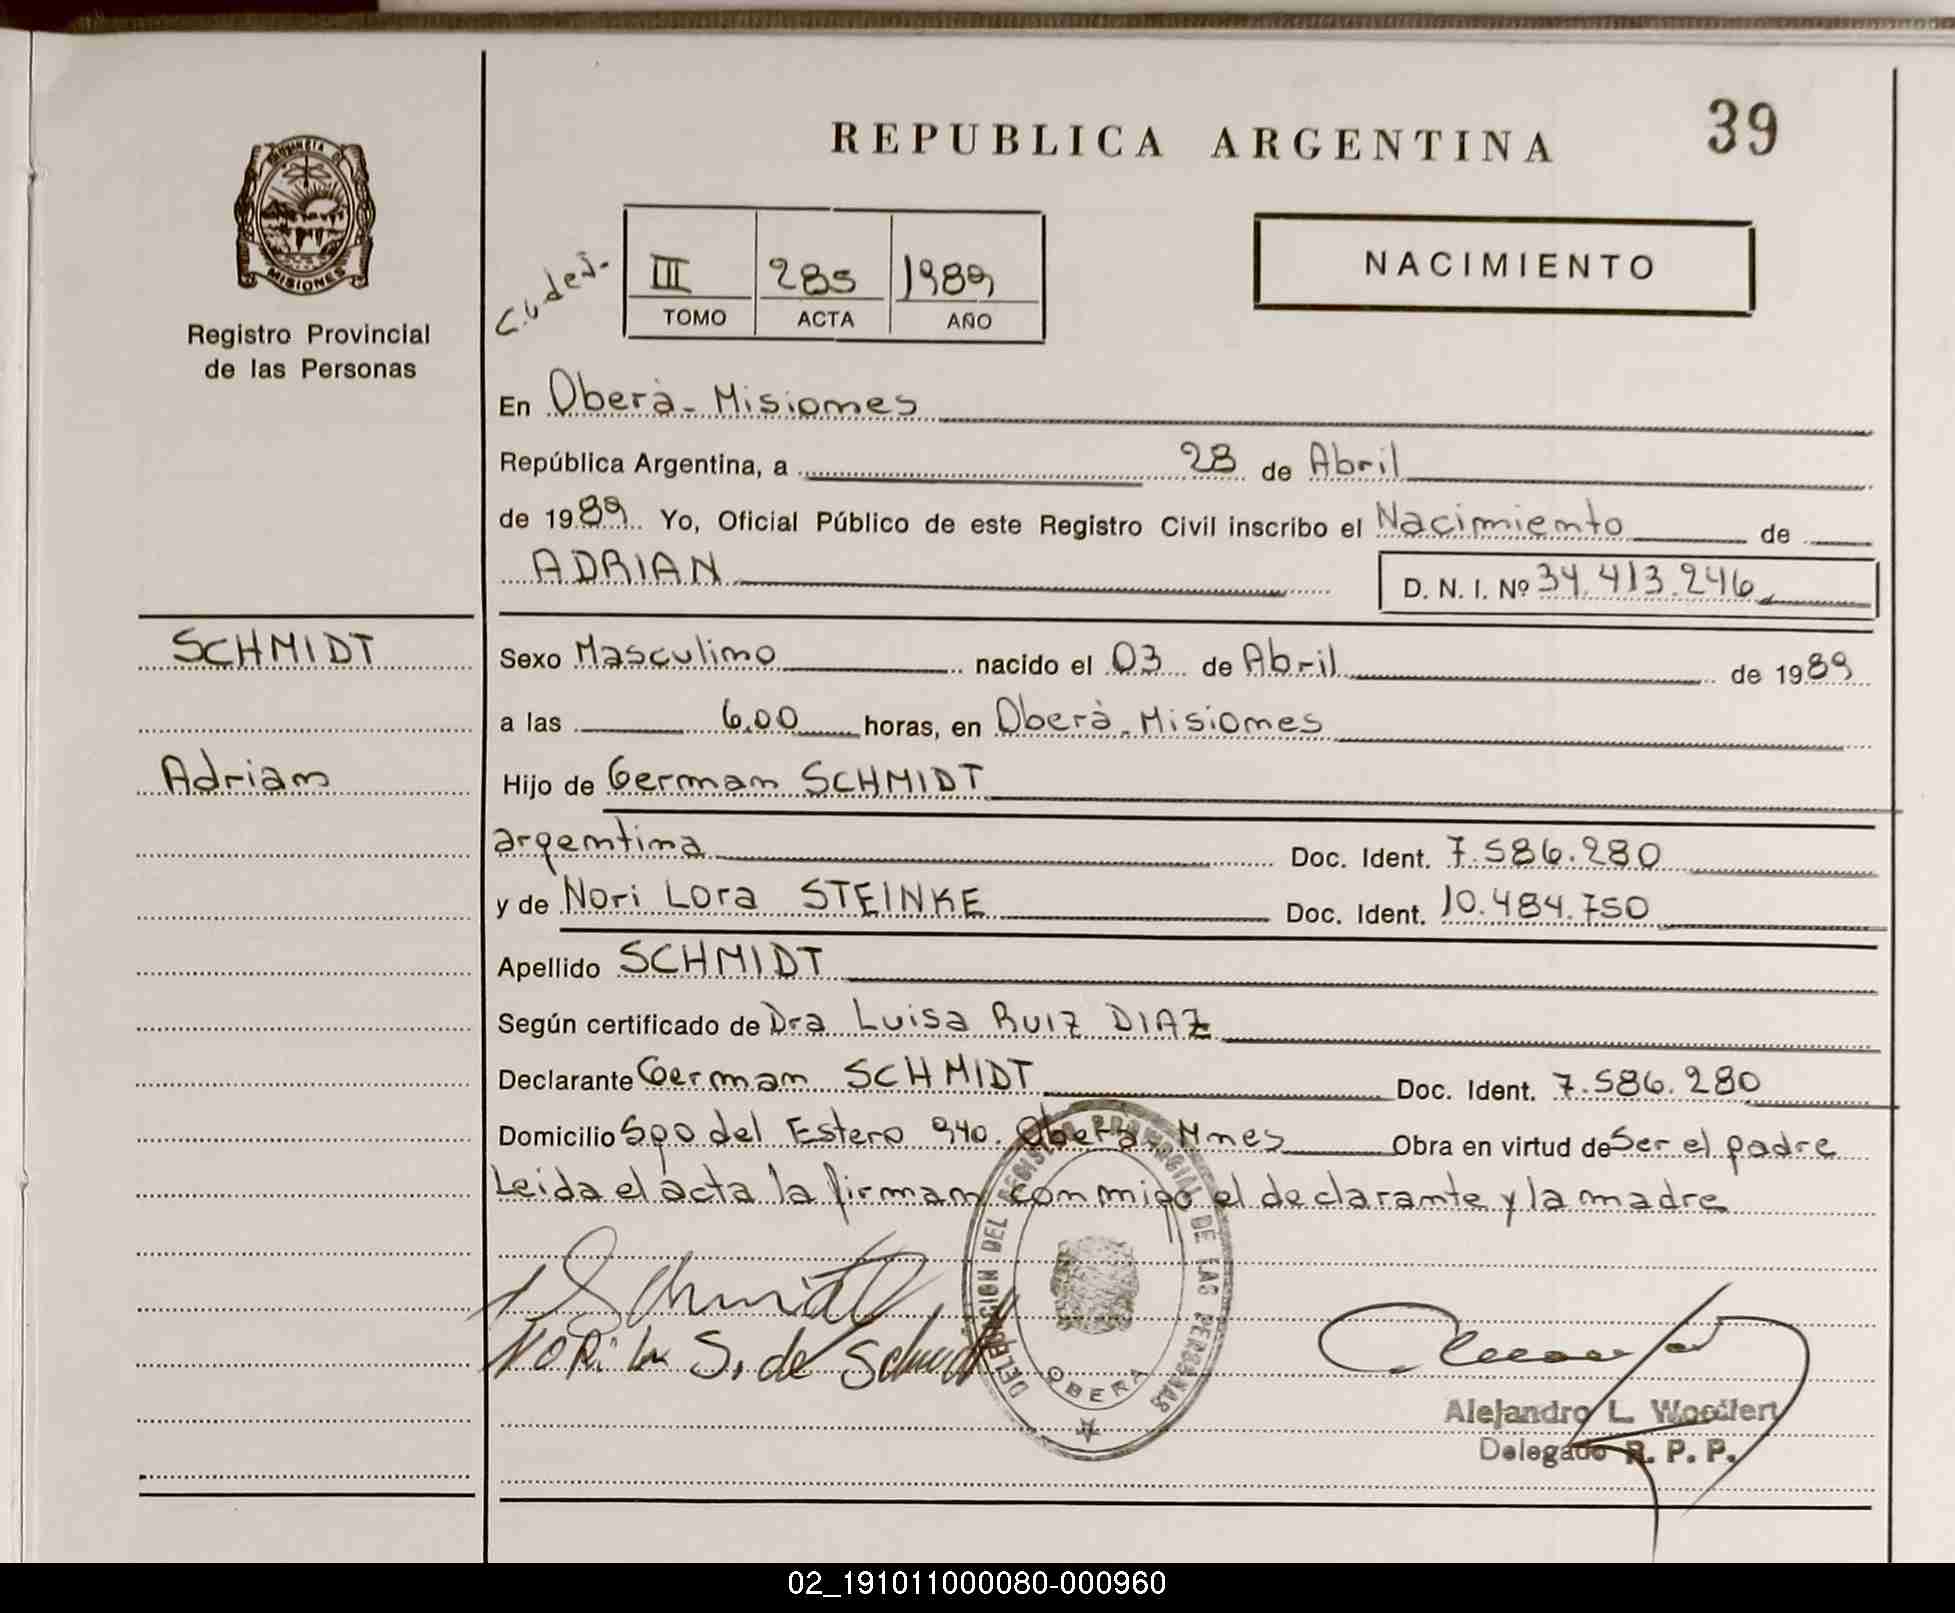 REPUBLICA ARGENTINA
39
PROVINCIA DE
MISIONES
Registro Provincial
de las Personas
III 285 1989
TOMO ACTA AÑO
NACIMIENTO
En Oberà - Misiones
República Argentina, a 28 de Abril
de 1989 Yo, Oficial Público de este Registro Civil inscribo el Nacimiento de
ADRIAN
D. N. I. Nº 34.413.246
SCHMIDT
Adrian
Sexo Masculino nacido el 03 de Abril de 1989
a las 6,00 horas, en Oberà - Misiones
Hijo de German SCHMIDT
argentina Doc. Ident. 7.586.280
y de Nori Lora STEINKE Doc. Ident. 10.484.750
Apellido SCHMIDT
Según certificado de Dra Luisa RUIZ DIAZ
Declarante German SCHMIDT Doc. Ident. 7.586.280
Domicilio Sgo del Estero 940. Oberà - Mnes Obra en virtud de Ser el padre
Leida el acta la firman conmigo el declarante y la madre
Schmidt
NORI S. de Schmidt
DELEGACION DEL REGISTRO PROVINCIAL DE LAS PERSONAS
OBERA
Alejandro L.
Delegado R. P. P.
02_191011000080-000960